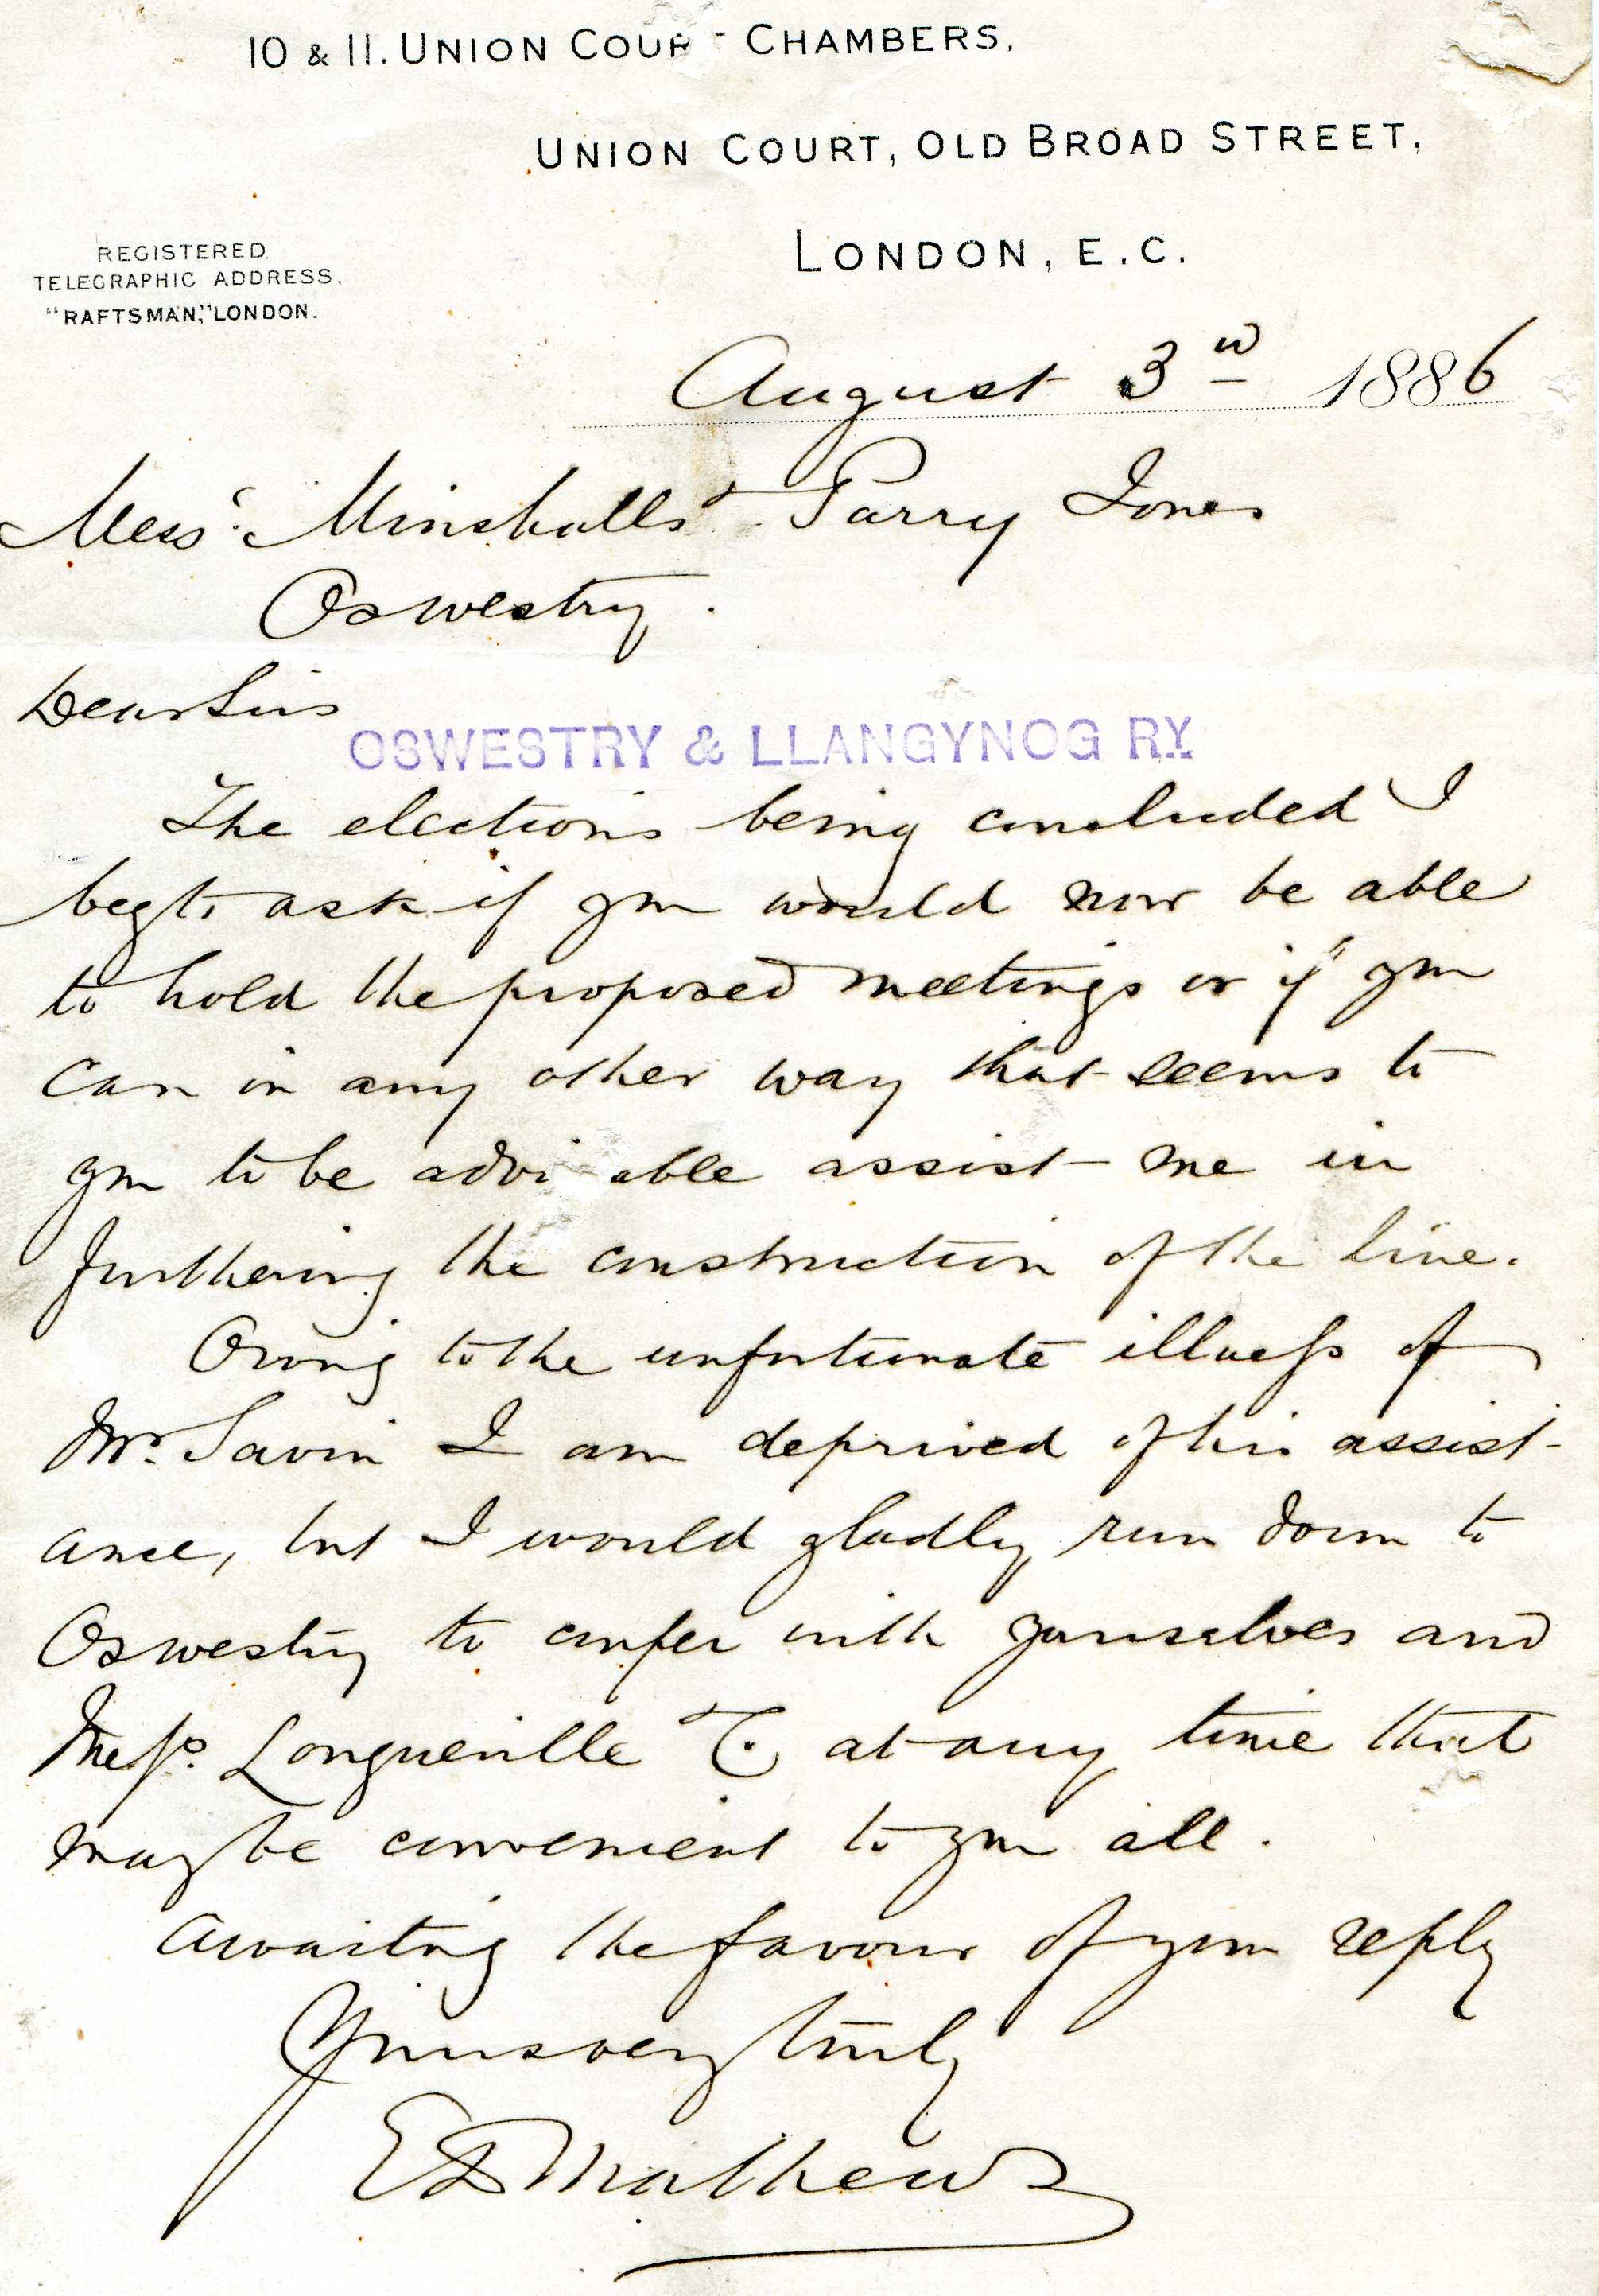 10 & 11. UNION COUR CHAMBERS,
UNION COURT, OLD BROAD STREET,
LONDON, E.C.
REGISTERED
TELEGRAPHIC ADDRESS.
"RAFTSMAN," LONDON.
August 3rd 1886
Messrs. Minshalls & Parry Jones
Oswestry.
Dear Sirs
OSWESTRY & LLANGYNOG RY.
The elections being concluded I
beg to ask if you would now be able
to hold the proposed meetings or if you
can in any other way that seems to
you to be advi able assist me in
furthering the construction of the line.
Owing to the unfortunate illness of
Mr. Savin I am deprived of his assist-
ance, but I would gladly run down to
Oswestry to confer with yourselves and
Messrs. Longueville & Co. at any time that
may be convenient to you all.
Awaiting the favour of your reply
Yours very truly
Mathews